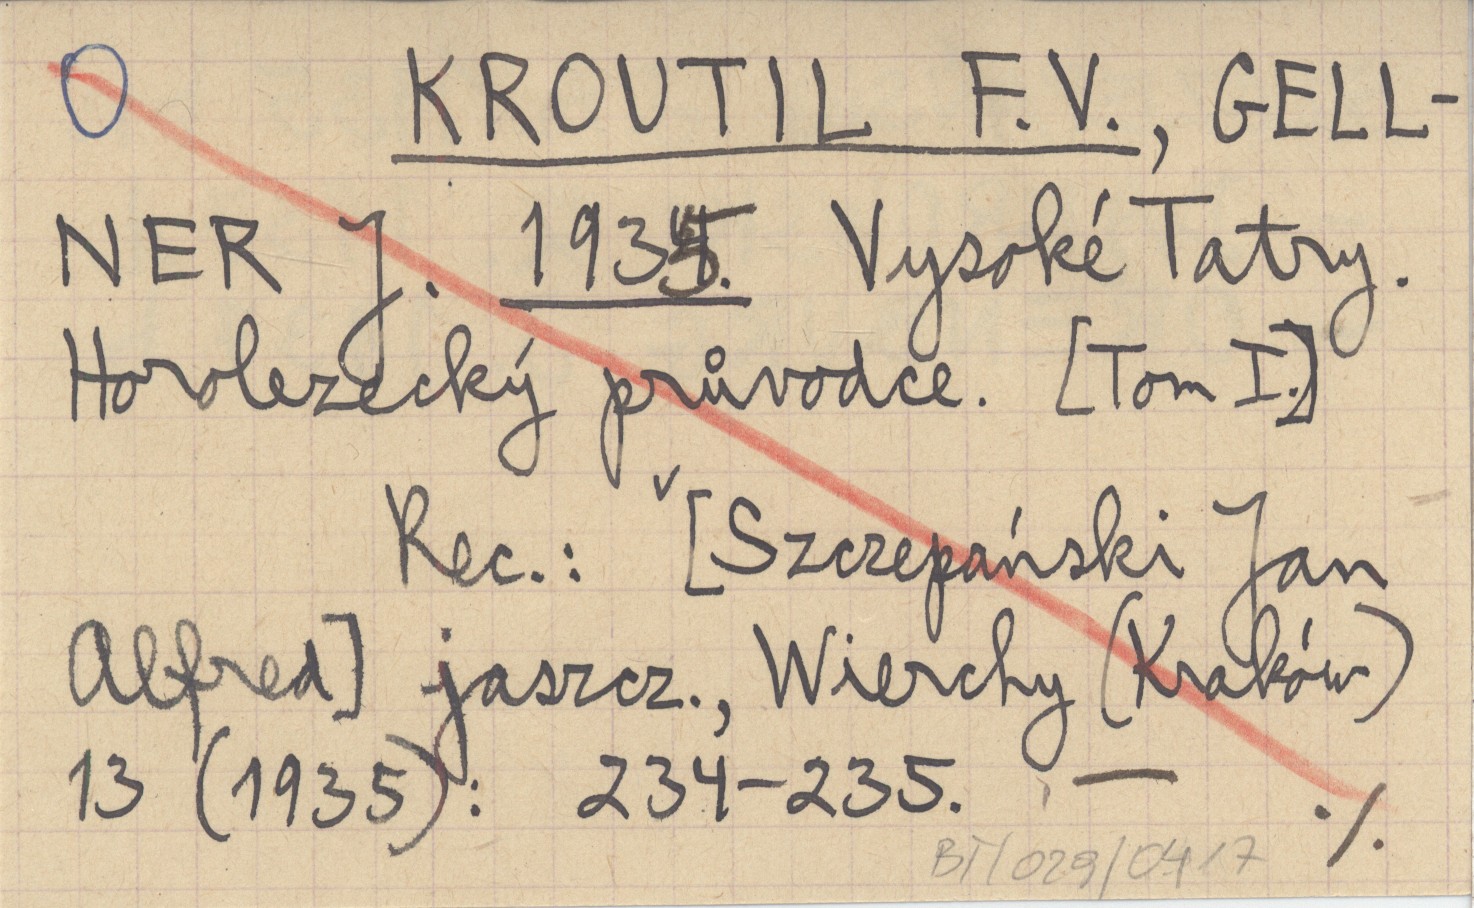 KROUTIL F.V., GELL-
NER J. 1935. Vysoké Tatry.
Horolezecký průvodce. [Tom I.]
Rec.: [Szczepański Jan
Alfred] jaszcz., Wierchy (Kraków)
13 (1935): 234-235. —
./.
BT/029/0417